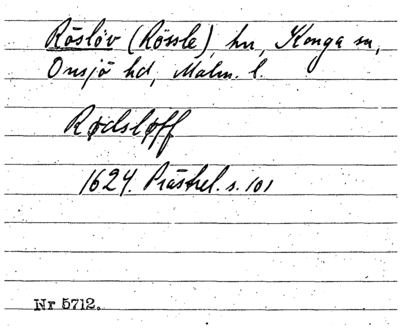 Röslöv (Rössle), hn, Konga sn,
Onsjö hd, Malm. l.
Rødsløff
1624. Prästrel. s. 101
Nr 5712.